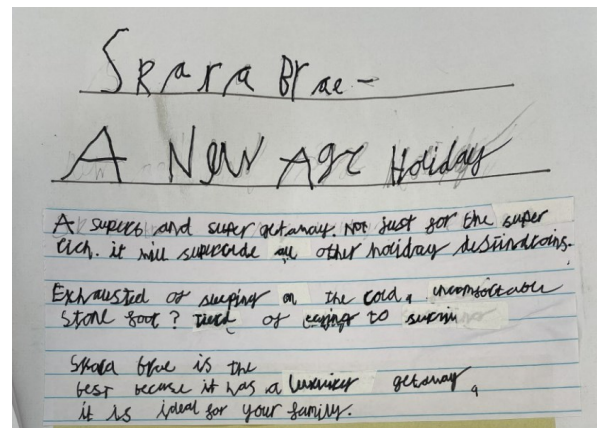 Skara Brae -
A New Age Holiday
A superb and super getaway. Not just for the super
rich. it will supercede all other holiday destindtoins.
Exhausted of sleeping on the cold, uncomfortable
stone foot? tierd of to
Skara Brae is the
best because it has a getaway,
it is ideal for your family.